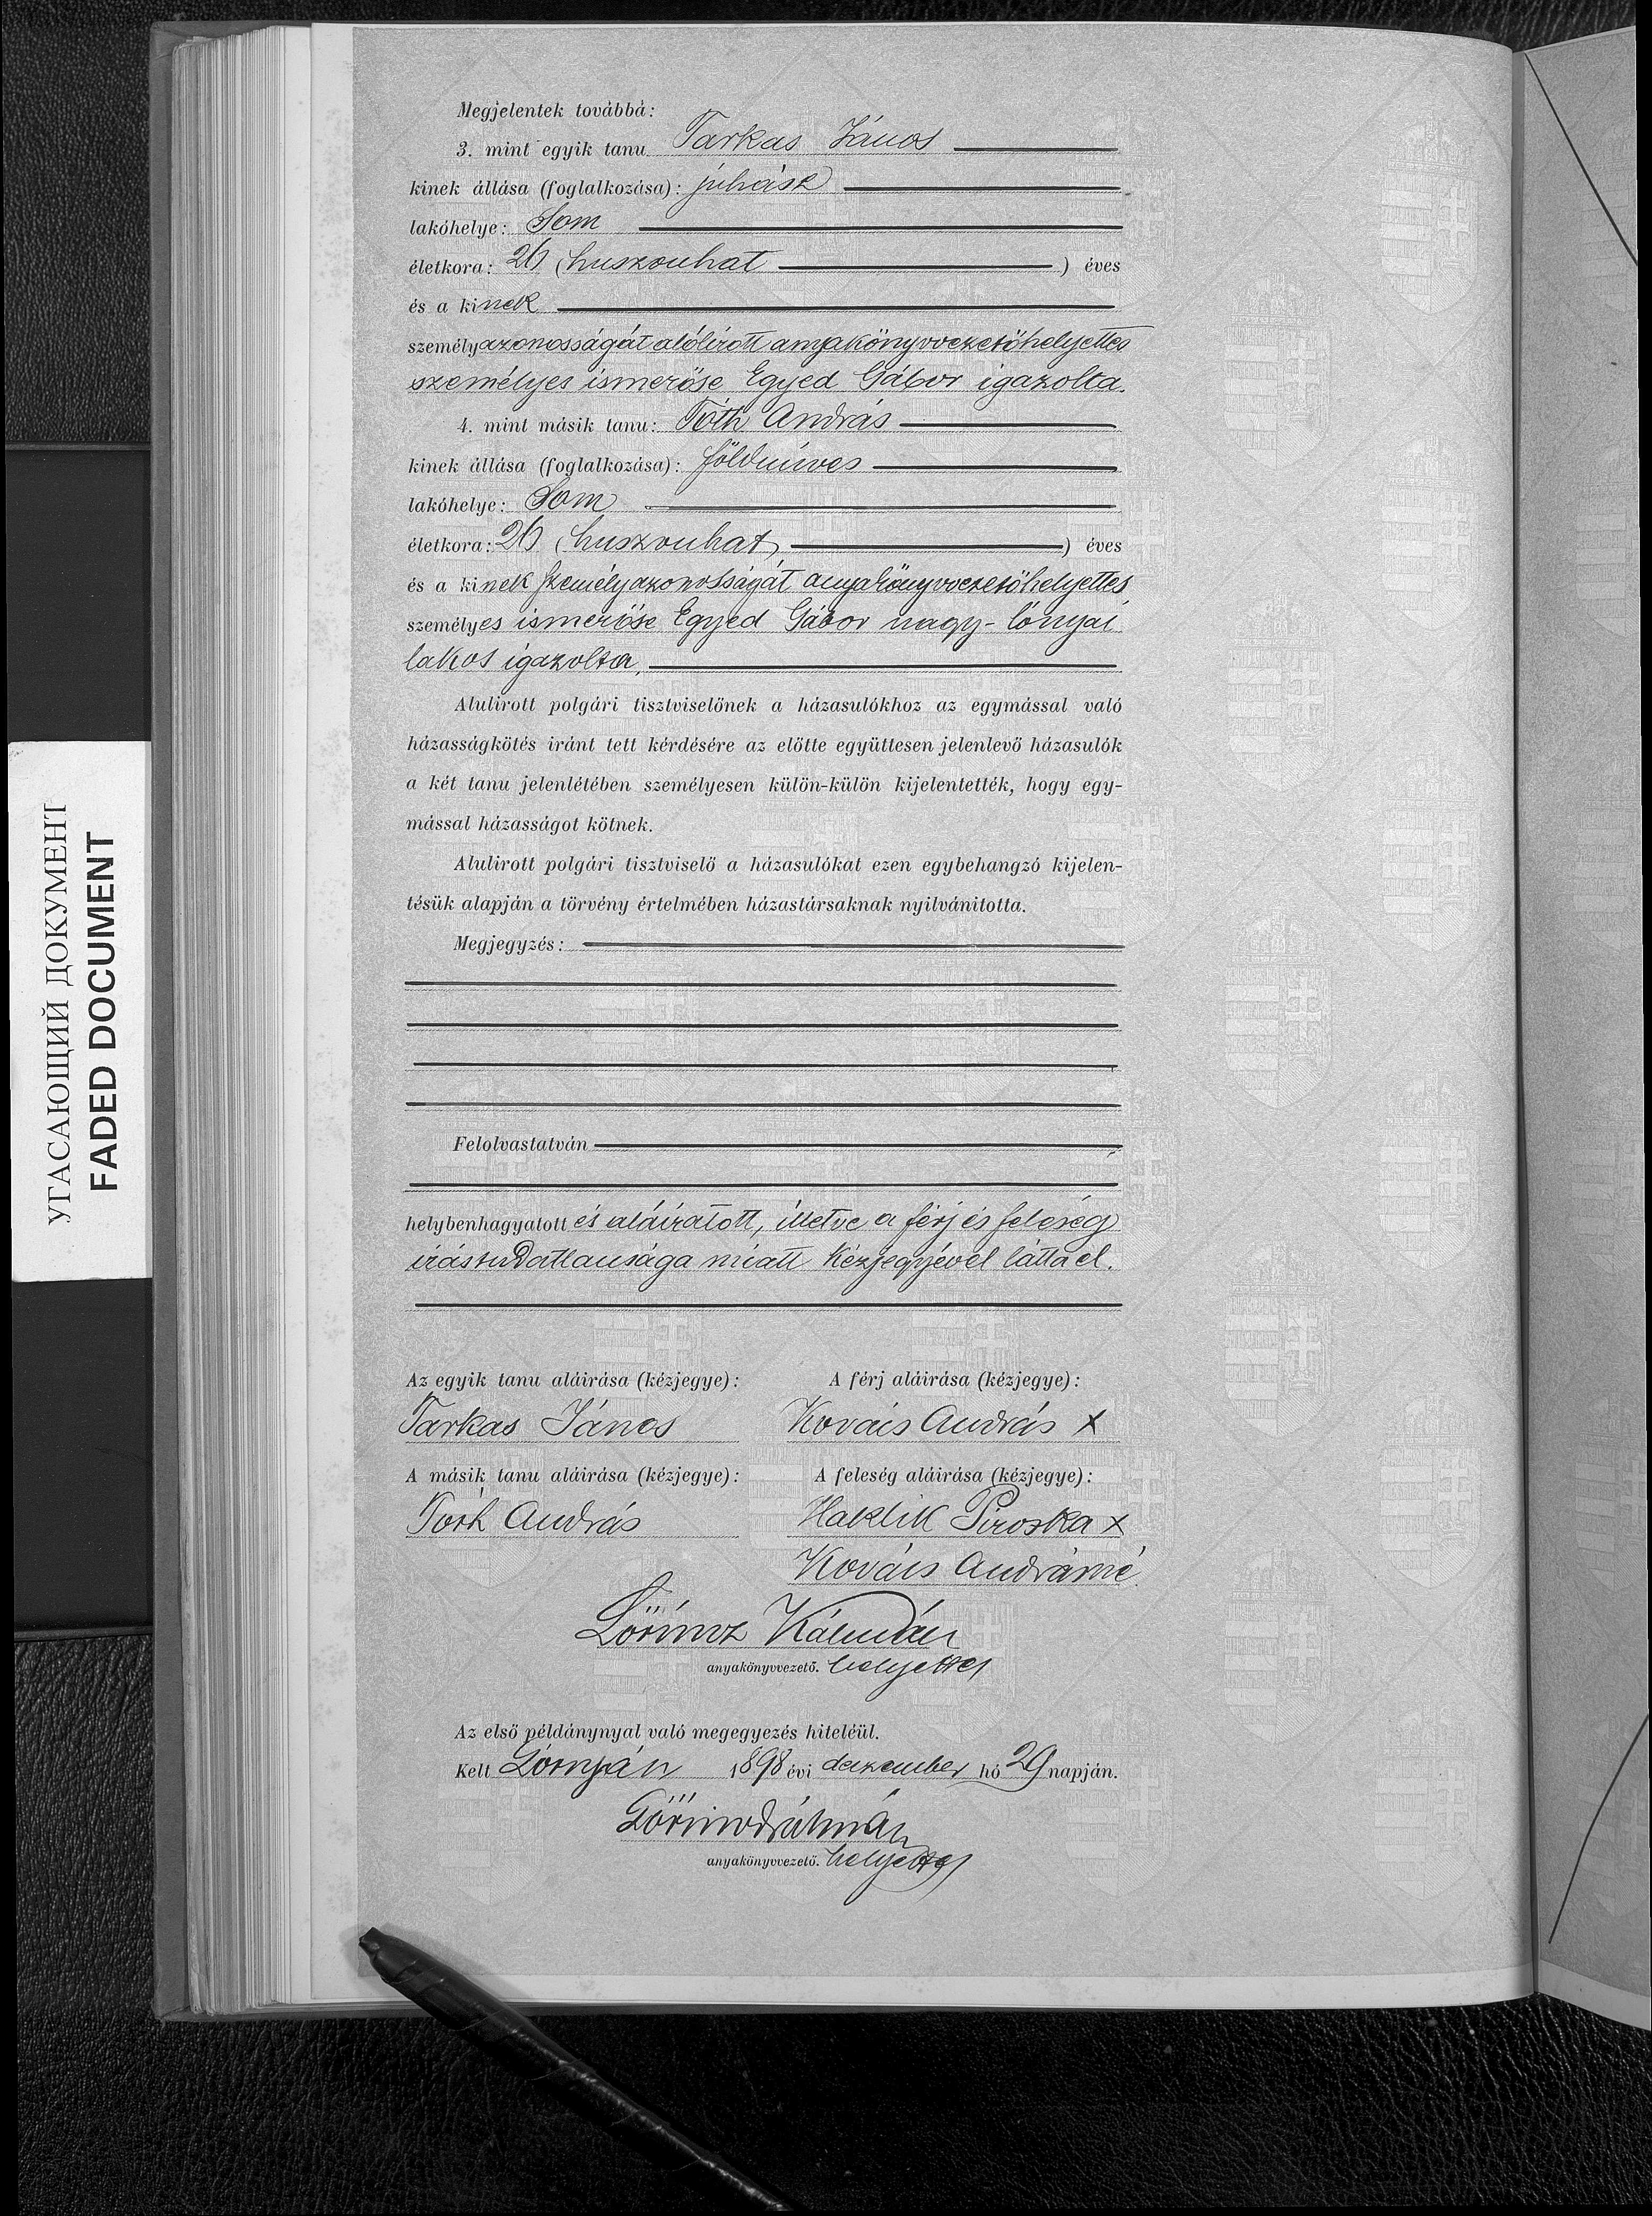 Megjelentek továbbá:
3. mint egyik tanu Tarkas János
kinek állása (foglalkozása): juhász
lakóhelye: Som
életkora: 26 (huszonhat) éves
és a kinek
személyazonosságát alólírott anyakönyvvezetőhelyettes
személyes ismerőse Egyed Gábor igazolta.
4. mint másik tanu: Tóth András
kinek állása (foglalkozása): földmíves
lakóhelye: Som
életkora: 26 (huszonhat) éves
és a kinek személyazonosságát anyakönyvvezetőhelyettes
személyes ismerőse Egyed Gábor nagy-lónyai
lakos igazolta.
Alulirott polgári tisztviselőnek a házasulókhoz az egymással való
házasságkötés iránt tett kérdésére az előtte együttesen jelenlevő házasulók
a két tanu jelenlétében személyesen külön-külön kijelentették, hogy egy-
mással házasságot kötnek.
Alulirott polgári tisztviselő a házasulókat ezen egybehangzó kijelen-
tésük alapján a törvény értelmében házastársaknak nyilvánitotta.
Megjegyzés:
Felolvastatván
helybenhagyatott és aláíratott, illetve a férj és feleség
írástudatlansága miatt kézjegyével látta el.
Az egyik tanu aláirása (kézjegye): A férj aláirása (kézjegye):
Tarkas János Kovács András x
A másik tanu aláirása (kézjegye): A feleség aláirása (kézjegye):
Toth András Haklik Piroska x
Kovács Andrásné
Lőrincz Kálmán
anyakönyvvezető. helyettes
Az első példánynyal való megegyezés hiteléül.
Kelt Lónyán 1898 évi dezember hó 29 napján.
Lőrincz Kálmán
anyakönyvvezető. helyettes
УГАСАЮЩИЙ ДОКУМЕНТ
FADED DOCUMENT